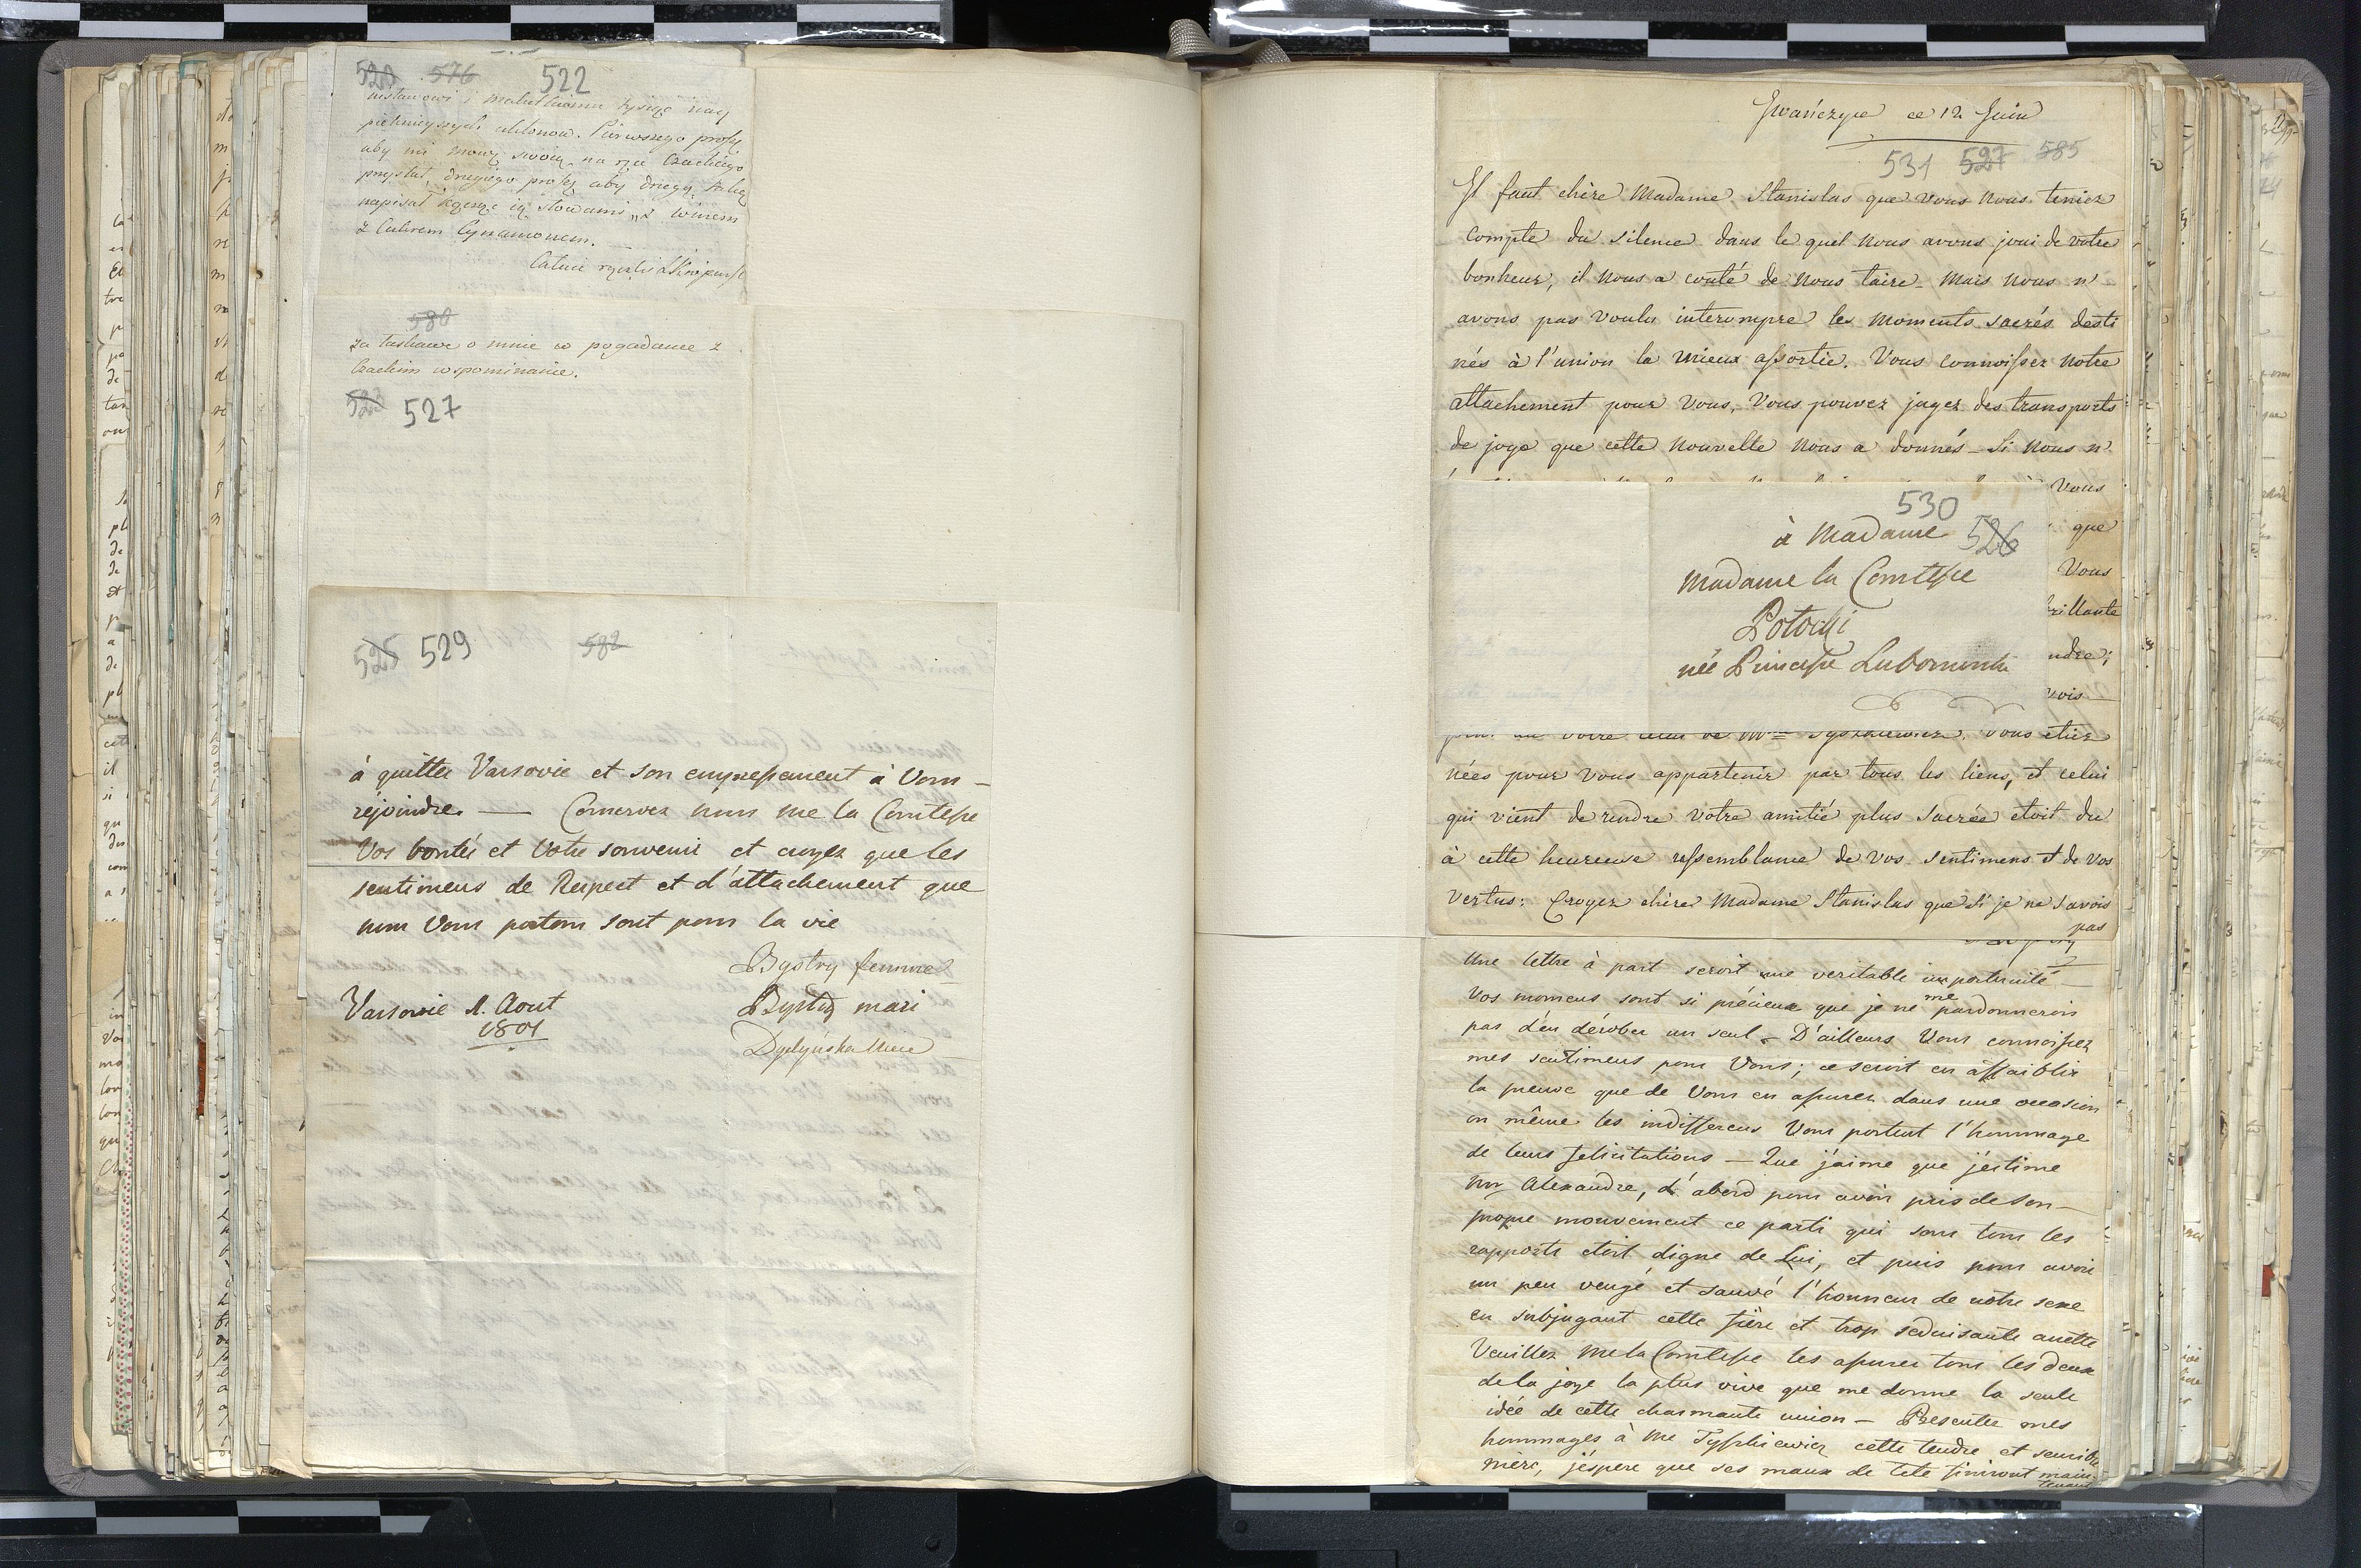 520 576 522
pięknieyszych ukłonow. Pierwszego proszę
aby mi mowę swoią na ręce Czackiego
przysłał, drugiego proszę aby drugą
napisał słowami „z winem
z Cukrem Cynamonem.
580
za łaskawe o mnie w pogadance z
Czackim wspominanie.
523 527
525 529 582
à quitter Varsovie et son empressement à Vous
rejoindre. — Conservez nous Me la Comtesse
Vos bontés et Votre souvenir et croyez que les
sentimens de Respect et d'attachement que
nous Vous portons sont pour la vie
Bystry femme
Bystry mari
Varsovie 1. Aout
1801
ce 12 Juin
531 527 585
Il faut chère Madame Stanislas que vous nous teniez
compte du silence dans le quel nous avons joui de votre
bonheur, il nous a couté de nous taire - mais nous n'
avons pas voulu interompre les moments sacrés desti
nés à l'union la mieux assortie. Vous connoissez notre
attachement pour Vous, Vous pouvez juger des transports
de joye que cette nouvelle nous a donnés - Si nous n'
Vous
que
Vous
rillante
ndre;
vois
530
à Madame 526
Madame la Comtesse
Potocki
née Princesse Lubomirska
Vous étiez
nées pour vous appartenir par tous les liens, et celui
qui vient de rendre votre amitié plus sacrée étoit du
à cette heureuse ressemblance de vos sentimens et de vos
vertus: Croyez chère Madame Stanislas que si je ne savois
pas
Une lettre à part seroit une veritable importunité —
Vos momens sont si précieux que je ne me pardonnerois
pas d'en dérober un seul - D'ailleurs Vous connoissez
mes sentimens pour Vous; ce seroit en affaiblir
la preuve que de Vous en assurer dans une occasion
où même les indifferens Vous portent l'hommage
de leurs felicitations — Que j'aime que j'estime
Mr Alexandre, d'abord pour avoir pris de son
propre mouvement ce parti qui sous tous les
rapports etoit digne de Lui, et puis pour avoir
un peu vengé et sauvé l'honneur de notre sexe
en subjugant cette fière et trop seduisante anette
Veuillez Me la Comtesse les assurer tous les deux
de la joye la plus vive que me donne la seule
idée de cette charmante union — Presenter mes
hommages à Me Tyszkiewicz cette tendre et sensible
mère, j'éspere que ses maux de tete finiront main-
tenant